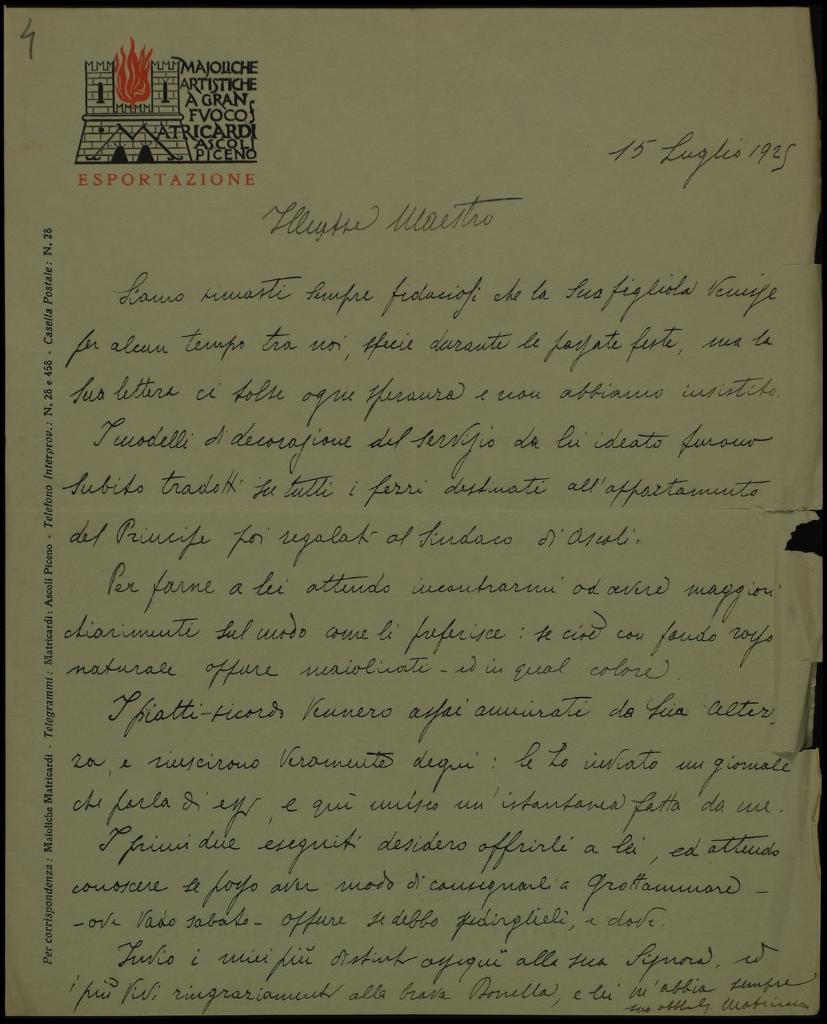 4
MAJOLICHE
ARTISTICHE
A GRAN
FVOCO
MATRICARDI
ASCOLI
PICENO
ESPORTAZIONE
15 Luglio 1925
Illustre Maestro
Siamo rimasti sempre fiduciosi che la Sua figliola venisse
per alcun tempo tra noi, specie durante le passate feste, ma la
Sua lettera ci tolse ogni speranza e non abbiamo insistito.
I modelli di decorazione del servizio da lei ideato furono
subito tradotti su tutti i pezzi destinati all'appartamento
del Principe poi regalati al Sindaco di Ascoli.
Per farne a lei attendo incontrarmi od avere maggiori
chiarimenti sul modo come li preferisce: se cioè con fondo rosso
naturale oppure maiolicati - ed in qual colore.
I piatti-ricordo vennero assai ammirati da Sua Altez-
za, e riuscirono veramente degni: le ho inviato un giornale
che parla di essi, e qui unisco un'istantanea fatta da me.
I primi due eseguiti desidero offrirli a lei, ed attendo
conoscere se posso aver modo di consegnarli a Grottammare -
- ove vado sabato - oppure se debbo spedirglieli, e dove.
Invio i miei più distinti ossequi alla sua Signora, ed
i più vivi ringraziamenti alla brava Brunella, e lei m'abbia sempre
suo obbl. G. Matricardi
Per corrispondenza: Maioliche Matricardi - Telegrammi: Matricardi: Ascoli Piceno - Telefono Interprov.: N. 28 e 458 - Casella Postale: N. 28